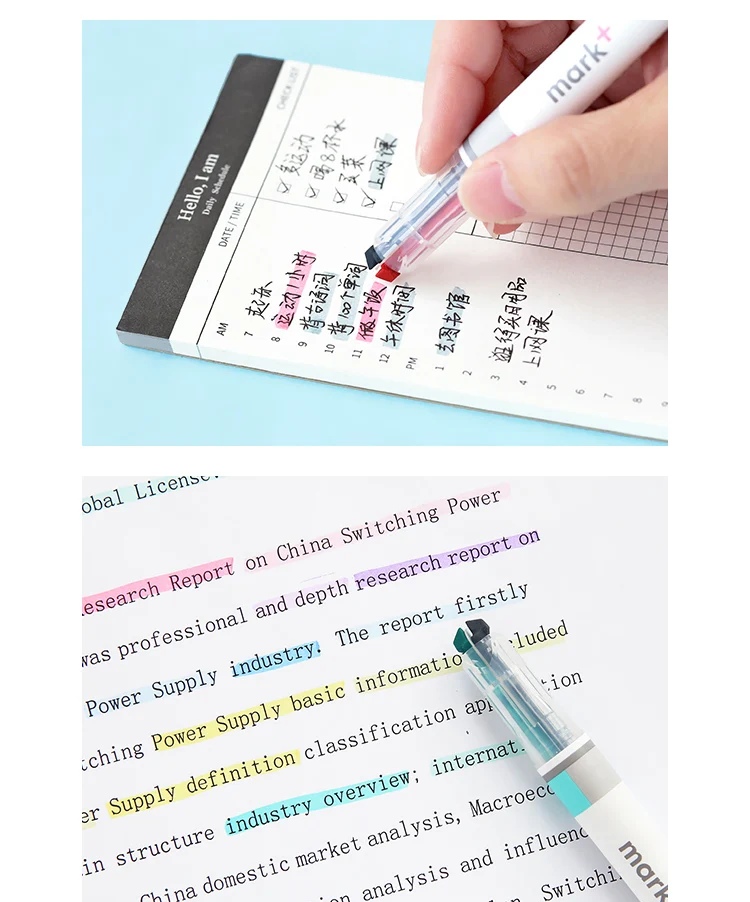 mark+
CHECK LIST
多运动
喝8杯水
买菜
上网课
Hello, I am
Daily Schedule
DATE / TIME
AM
7 起床
8 运动1小时
9 背古诗词
10 背100个单词
11 做午饭
12 午休时间
PM
1 去图书馆
2
3 逛街买日用品
4 上网课
5
6
7
8
9
obal License.
Research Report on China Switching Power
was professional and depth research report on
Power Supply industry. The report firstly
tching Power Supply basic information included
er Supply definition classification application
in structure industry overview; internat
China domestic market analysis, Macroeco
on analysis and influenc
Switchi
mark